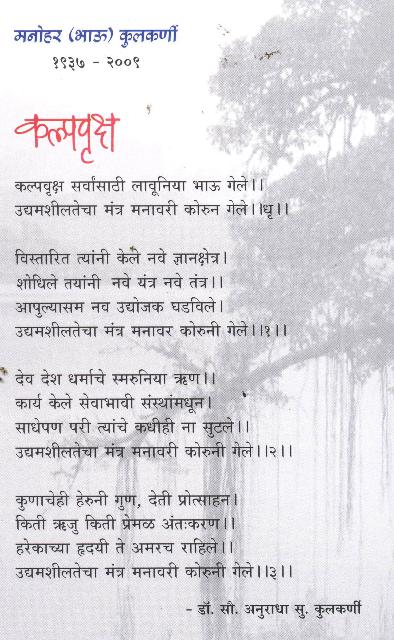 मनोहर (भाऊ) कुलकर्णी
१९३७ - २००९
कल्पवृक्ष
कल्पवृक्ष सर्वांसाठी लावूनिया भाऊ गेले।।
उद्यमशीलतेचा मंत्र मनावरी कोरुन गेले।।धृ।।
विस्तारित त्यांनी केले नवे ज्ञानक्षेत्र।
शोधिले तयांनी नवे यंत्र नवे तंत्र।।
आपुल्यासम नव उद्योजक घडविले।
उद्यमशीलतेचा मंत्र मनावर कोरुनी गेले।।१।।
देव देश धर्माचे स्मरुनिया ऋण।।
कार्य केले सेवाभावी संस्थांमधून।
साधेपण परी त्यांचे कधीही ना सुटले।।
उद्यमशीलतेचा मंत्र मनावरी कोरुनी गेले।।२।।
कुणाचेही हेरुनी गुण, देती प्रोत्साहन।
किती ऋजु किती प्रेमळ अंतःकरण।।
हरेकाच्या हृदयी ते अमरच राहिले।।
उद्यमशीलतेचा मंत्र मनावरी कोरुनी गेले।।३।।
- डॉ. सौ. अनुराधा सु. कुलकर्णी